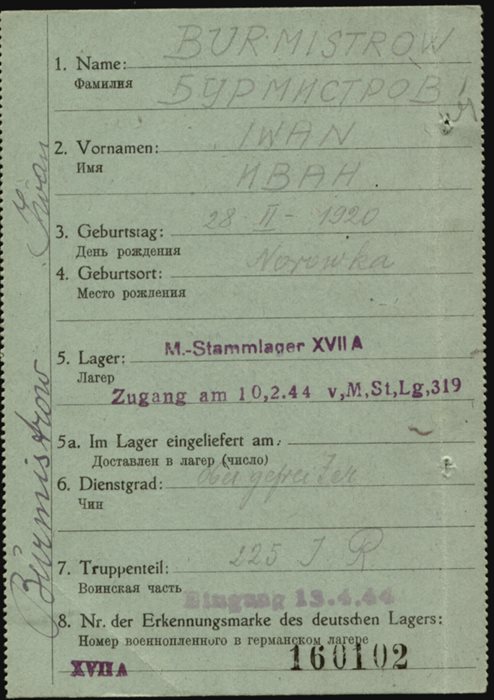 BURMISTROW
1. Name:
Фамилия
БУРМИСТРОВ
IWAN
2. Vornamen:
Имя
ИВАН
28 II - 1920
3. Geburtstag:
День рождения
Norowka
4. Geburtsort:
Место рождения
5. Lager: M.-Stammlager XVII A
Лагер
Zugang am 10,2.44 v,M,St,Lg,319
5a. Im Lager eingeliefert am:
Доставлен в лагер (число)
6. Dienstgrad: Obergefreiter
Чин
7. Truppenteil: 225 I R
Воинская часть
Eingang 13.4.44
8. Nr. der Erkennungsmarke des deutschen Lagers:
Номер военнопленного в германском лагере
160102
XVII A
Bürmistrow Iwan